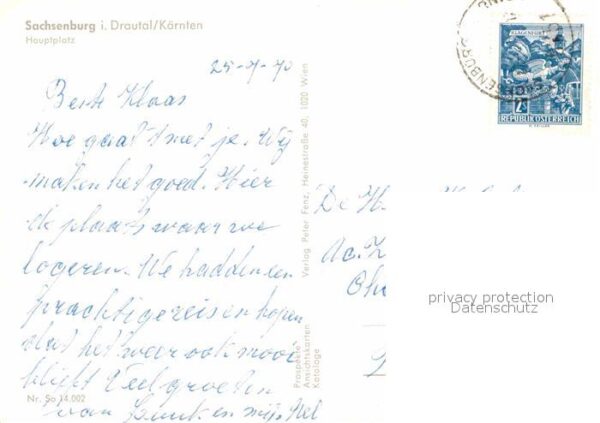 Sachsenburg i. Drautal/Kärnten
Hauptplatz
25-7-70
Beste Klaas
Hoe gaat het met je. Wij
maken het goed. Hier
de plaats waar we
logeren. We hadden een
prachtige reis en hopen
dat het weer ook mooi
blijft Veel groeten
van en mijn
Nr. So 14.002
Prospekte
Ansichtskarten
Kataloge
Verlag Peter Fenz, Heinestraße 40, 1020 Wien
KLAGENFURT
2S
REPUBLIK ÖSTERREICH
De H
Ac. Z
privacy protection
Datenschutz